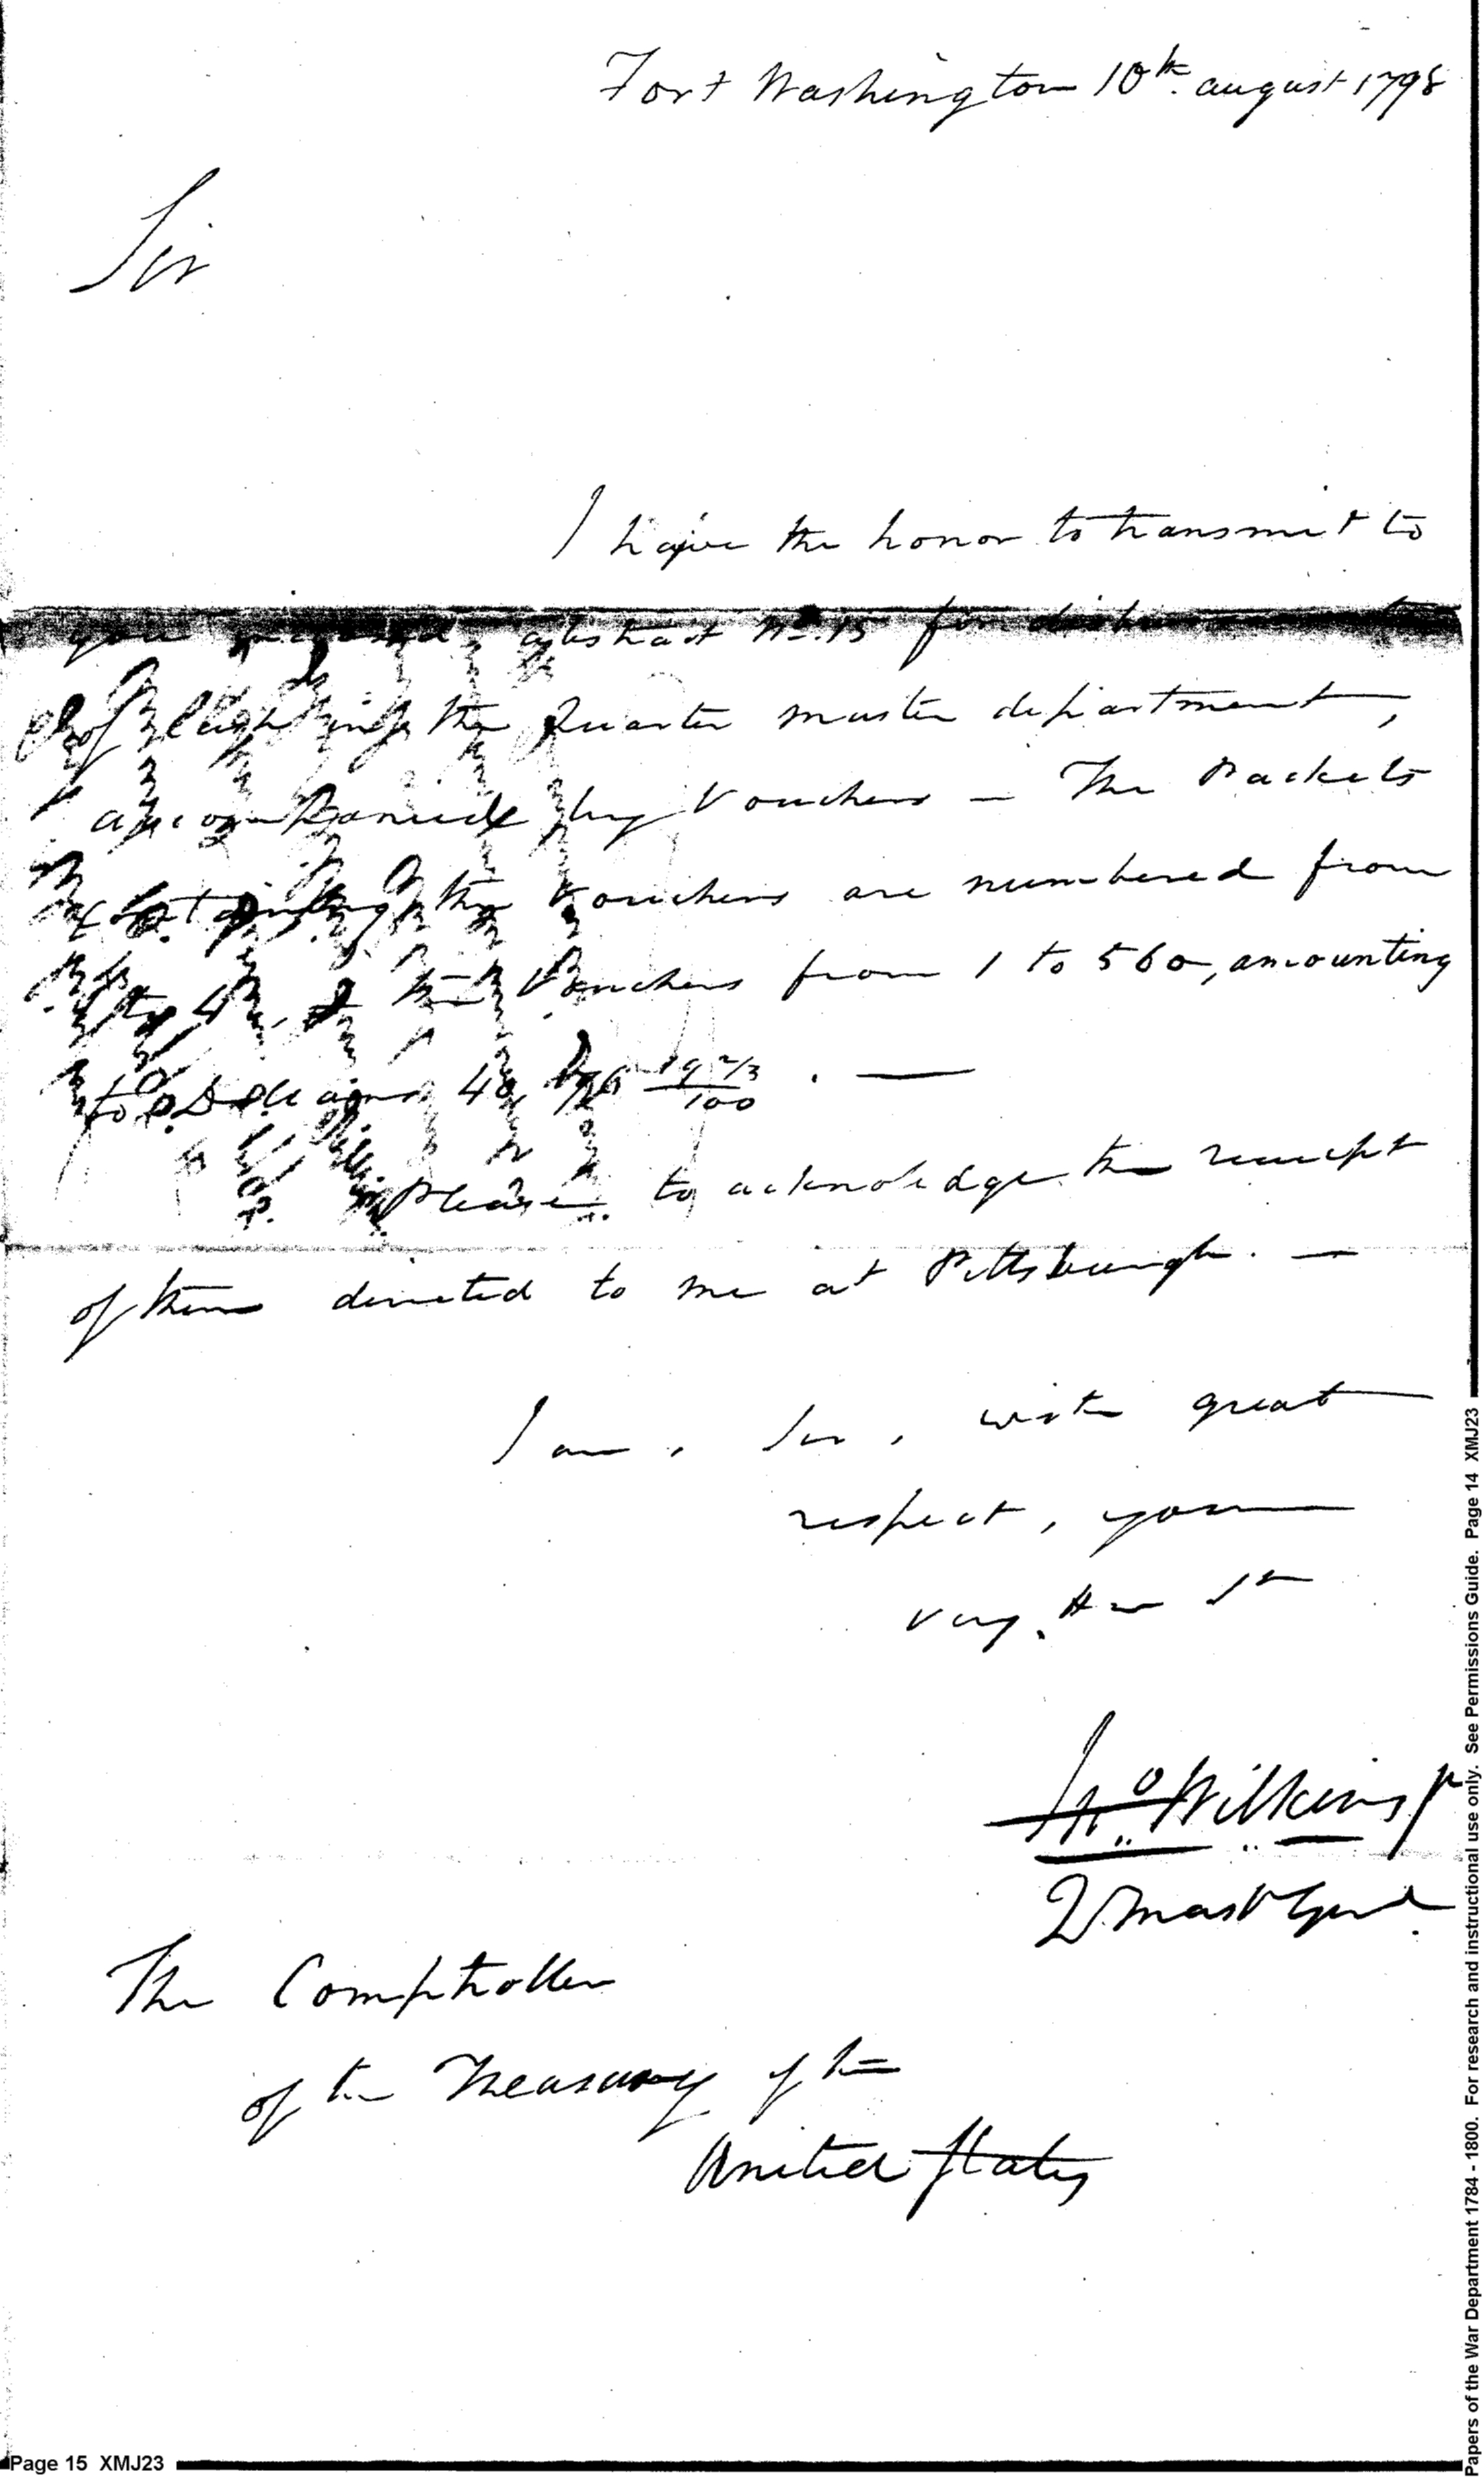 Fort Washington 10th. august 1798
Sir
I have the honor to transmit to
you abstract No. 15 for
of the Quarter master department,
accompanied by Vouchers — The Packets
containing the Vouchers are numbered from
to 4, & the Vouchers from 1 to 560, amounting
to Dollars 19 2/3/100 . —
Please to acknoledge the receipt
of them directed to me at Pittsburgh. —
I am, Sir, with great
respect, your
very Hum St
Jno Wilkins Jr
Q Mast Genl.
The Comptroller
of the Treasury of the
United States
Page 15 XMJ23
Papers of the War Department 1784 - 1800. For research and instructional use only. See Permissions Guide. Page 14 XMJ23